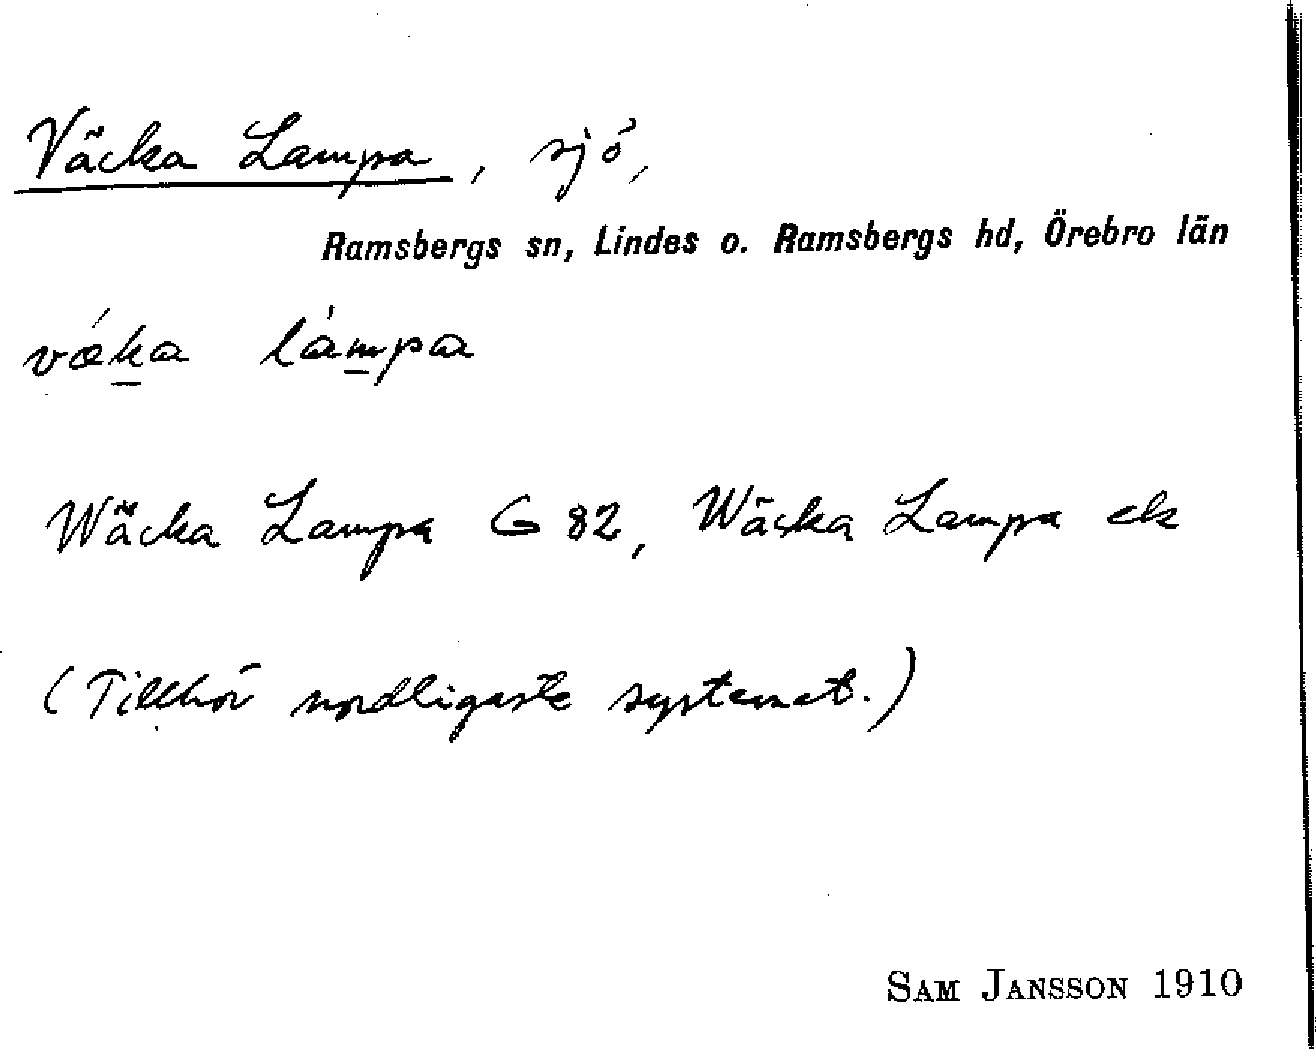 Väcka Lampa, sjö,
Ramsbergs sn, Lindes o. Ramsbergs hd, Örebro län
vǽka lámpa
Wäcka Lampa G 82, Wäcka Lampa ek
(Tillhör nordligaste systemet.)
SAM JANSSON 1910